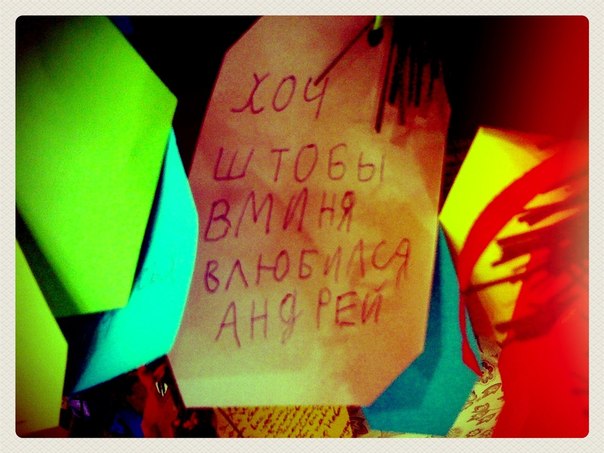 ХОЧ
ШТОБЫ
ВМИНЯ
ВЛЮБИЛСЯ
АНДРЕЙ